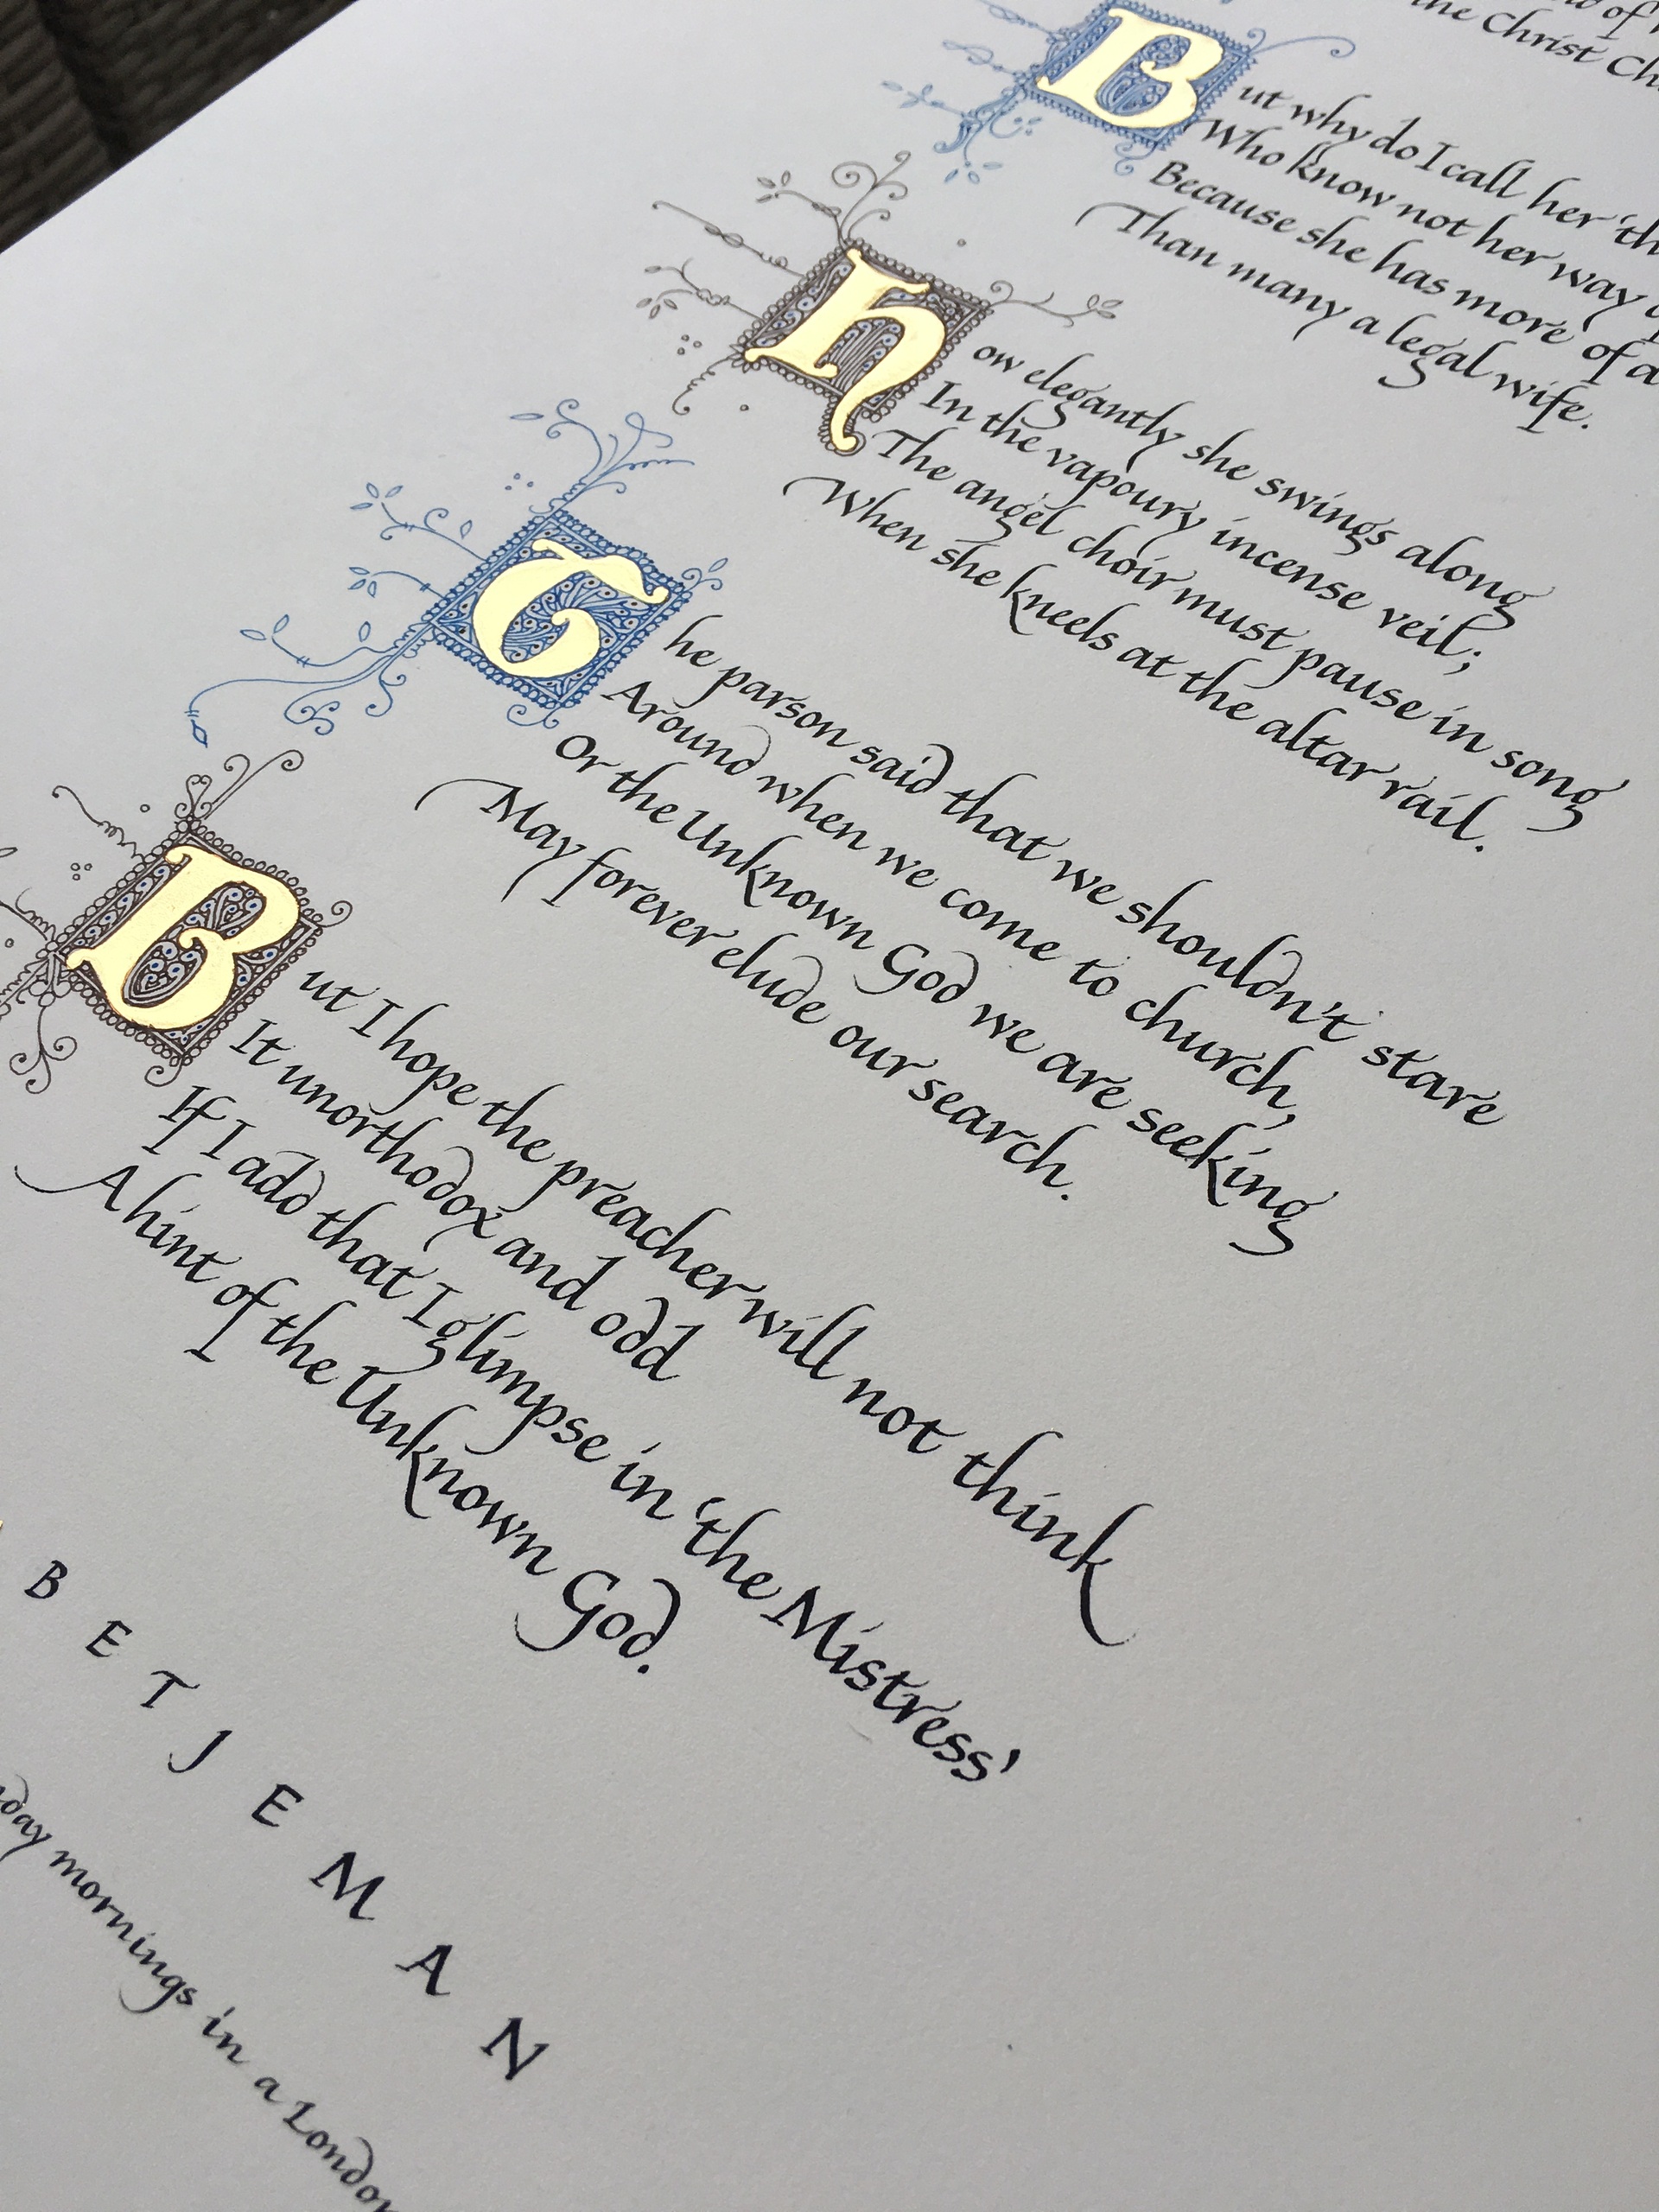 the Christ Ch
But why do I call her 'th
Who know not her way
Because she has more of a
Than many a legal wife.
How elegantly she swings along
In the vapoury incense veil;
The angel choir must pause in song
When she kneels at the altar rail.
The parson said that we shouldn't stare
Around when we come to church,
Or the Unknown God we are seeking
May forever elude our search.
But I hope the preacher will not think
It unorthodox and odd
If I add that I glimpse in 'the Mistress'
A hint of the Unknown God.
BETJEMAN
day mornings in a London